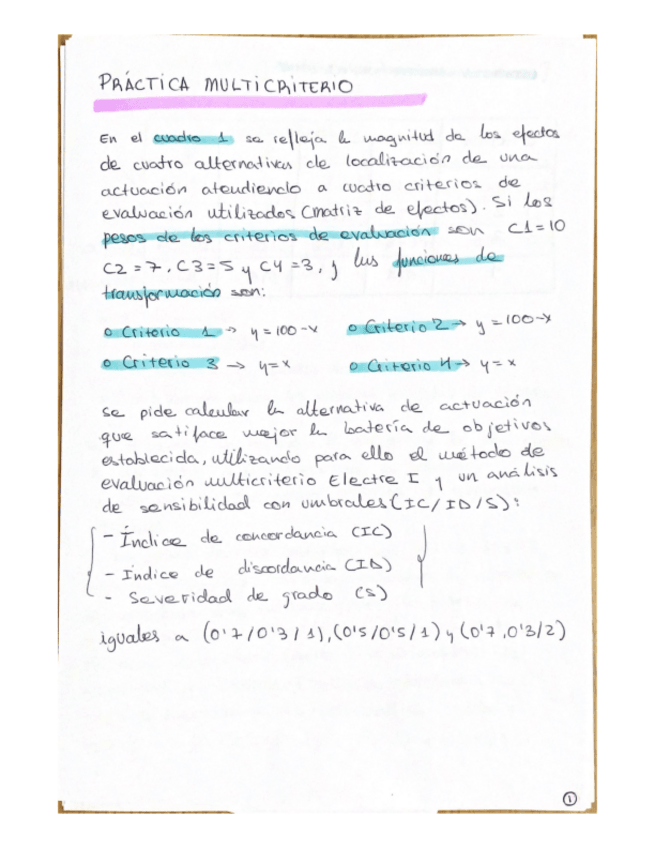 PRÁCTICA MULTICRITERIO
En el cuadro 1 se refleja la magnitud de los efectos
de cuatro alternativas de localización de una
actuación atendiendo a cuatro criterios de
evaluación utilizados (matriz de efectos). Si los
pesos de los criterios de evaluación son C1=10
C2=7, C3=5 y C4=3, y las funciones de
transformación son:
o Criterio 1 -> y=100-x o Criterio 2 -> y=100-x
o Criterio 3 -> y=x o Criterio 4 -> y=x
Se pide calcular la alternativa de actuación
que satiface mejor la batería de objetivos
establecida, utilizando para ello el método de
evaluación multicriterio Electre I y un análisis
de sensibilidad con umbrales (IC/ID/S):
- Índice de concordancia (IC)
- Índice de discordancia (ID)
- Severidad de grado (S)
iguales a (0'7/0'3/1), (0'5/0'5/1) y (0'7,0'3/2)
1